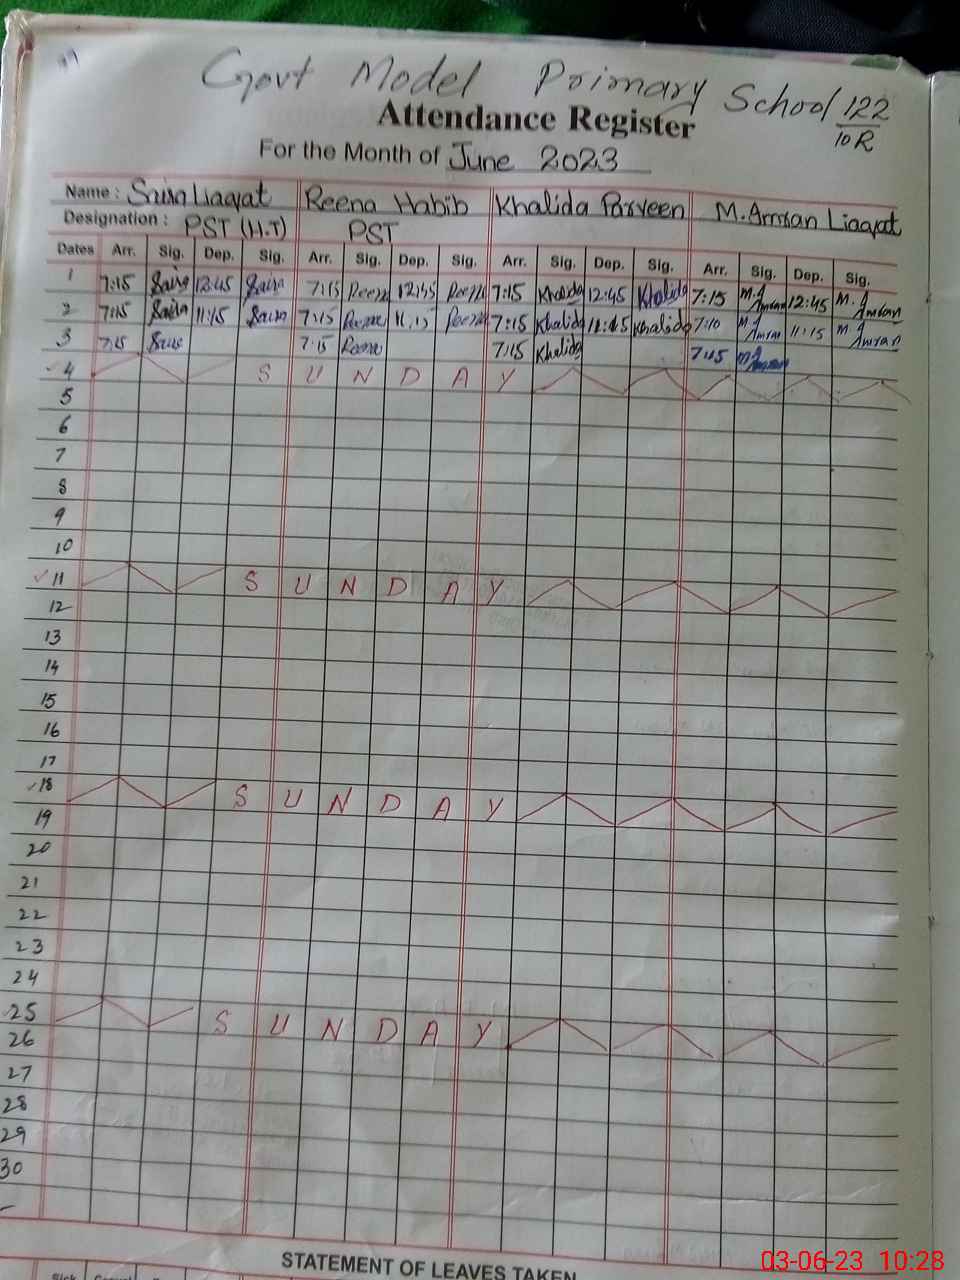 Govt Model Primary School 122/10R
Attendance Register
For the Month of June 2023
Name : Saira Liaqat Reena Habib Khalida Parveen M. Amran Liaqat
Designation : PST (H.T) PST
Dates Arr. Sig. Dep. Sig. Arr. Sig. Dep. Sig. Arr. Sig. Dep. Sig. Arr. Sig. Dep. Sig.
1 7:15 Saira 12:45 Saira 7:15 Reena 12:45 Reena 7:15 Khalida 12:45 Khalida 7:15 M.A Amran 12:45 M. A Amran
2 7:15 Saira 11:15 Saira 7:15 Reena 11:15 Reena 7:15 Khalida 11:15 Khalida 7:10 M.A Amran 11:15 M. A Amran
3 7:15 Saira 7:15 Reena 7:15 Khalida 7:15 M.A Amran
4 S U N D A Y
5
6
7
8
9
10
11 S U N D A Y
12
13
14
15
16
17
18 S U N D A Y
19
20
21
22
23
24
25 S U N D A Y
26
27
28
29
30
STATEMENT OF LEAVES TAKEN
Sick Casual
03-06-23 10:28